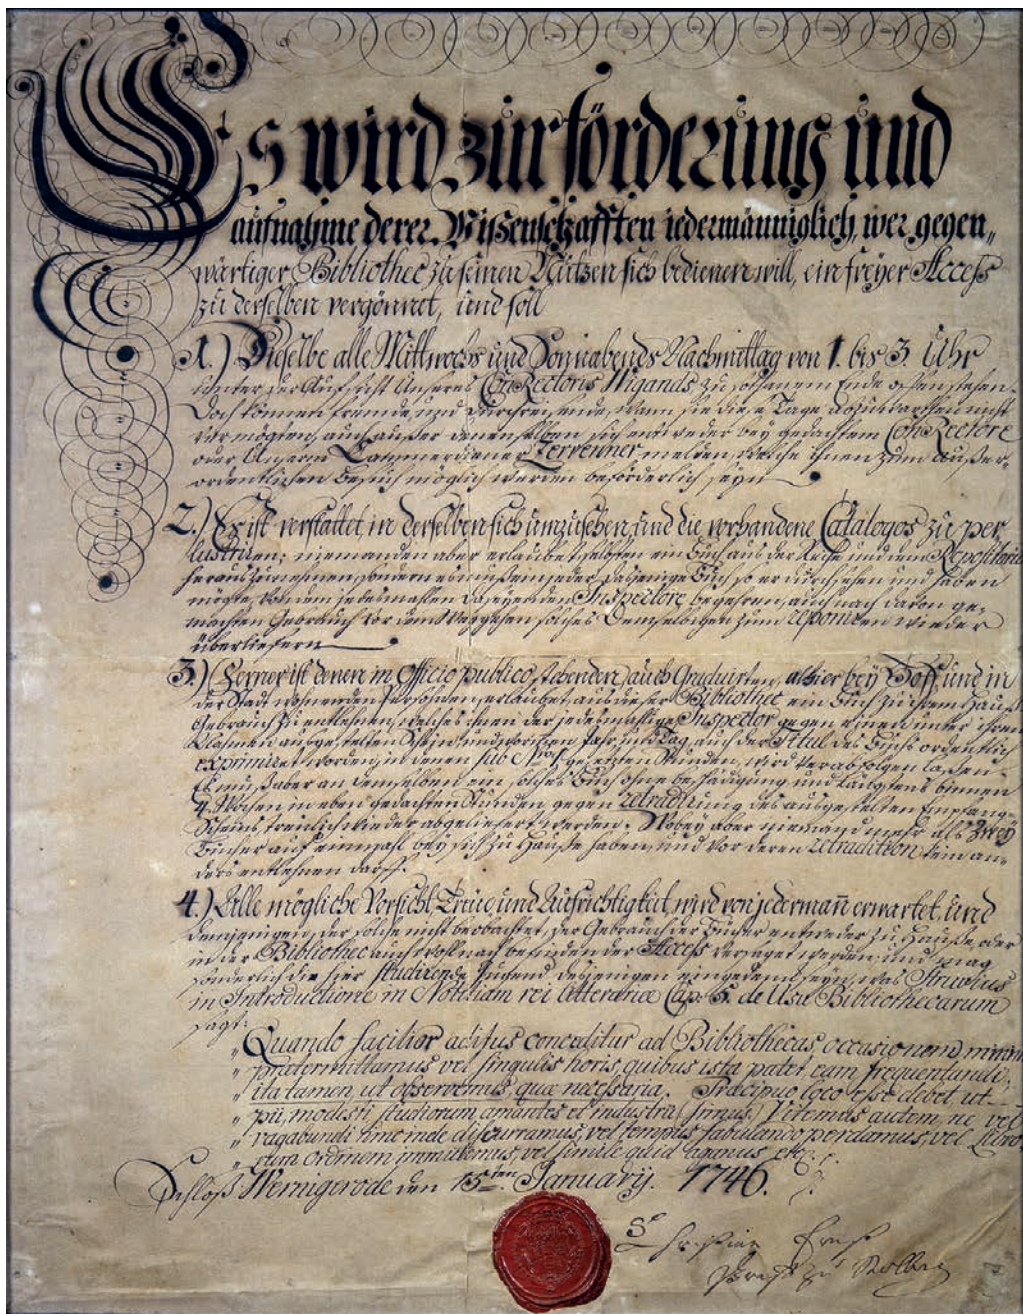 Es wird zur förderung und
aufnahme derer Wißenschafften iedermänniglich, wer gegen„
wärtiger Bibliothec zu seinen Nutzen sich bedienen will, ein freyer Access
zu derselben vergönnet, und soll
1.) Dieselbe alle Mittwochs und Sonnabends Nachmittag von 1. bis 3. Uhr
unter der Aufsicht Unseres ConRectoris Wigands zu solchem Ende offenstehen.
Doch können fremde und durchreisende, wann sie diese Tage abzuwarten nicht
vermögten, auch außer denenselben sich entweder bey gedachtem ConRectore
oder Unserm Cammerdiener Zerrenner melden, welche ihnen zum außer-
ordentlichen Besuch möglich werden beförderlich seyn
2.) Es ist verstattet, in derselben sich umzusehen, und die vorhandene Catalogos zu per
lustriren; niemanden aber erlaubet, selbsten ein Buch aus der Reyhe und den Repositoriis
herauszunehmen, sondern es muß ein jeder dasjenige Buch, so er durchsehen und haben
mögte, von dem jedesmahlen daseyenden Inspectore begehren, auch nach davon ge-
machten Gebrauch vor dem Weggehen solches demselbigen zum reponiren wieder
überliefern
3.) Ferner ist denen in Officio publico stehenden, auch Graduirten, alhier bey Hoff und in
der Stadt wohnenden Persohnen erlaubet, aus dieser Bibliothec ein Buch zu ihrem Hauß
Gebrauch zu entlehnen, welches ihnen der jedesmahlige Inspector gegen einen unter ihren
Nahmen ausgestelten Schein, und worinnen Jahr und Tag, auch der Titul des Buchs ordentlich
exprimiret worden, in denen sub No. 1. gesetzten Stunden, wird verabfolgen laßen.
Es muß aber an demselben ein solches Buch ohne beschädigung und längstens binnen
4. Wochen in eben gedachten Stunden gegen retradirung des ausgestelten Empfang-
Scheins treulich wieder abgeliefert werden. Wobey aber niemand mehr als zwey
Bücher auf einmahl bey sich zu Hauße haben, und vor deren retradition kein an-
ders entlehnen darff.
4.) Alle mögliche Vorsicht, Treue und Aufrichtigkeit, wird von jedermañ erwartet, und
demjenigen, der solche nicht beobachtet, der Gebrauch der Bücher entweder zu Hauße, oder
in der Bibliothec auch wohl nach befinden der Access versaget werden; und mag
sonderlich die hier studirende Jugend desjenigen eingedenck seyn, was Struvius
in Introductione in Notitiam rei litterariæ Cap. 5. de Usu Bibliothecarum
sagt:
„Quando facilior aditus conceditur ad Bibliothecas, occasionem, minime
„prætermittamus vel singulis horis, quibus ista patet eam frequentandi,
„ita tamen, ut observemus, quæ necessaria. Præcipuo loco esse debet ut
„pii, modesti studiorum amantes et industrii simus. Vitemus autem, ne vel
„vagabundi hinc inde discurramus, vel tempus fabulando perdamus, vel Libro
„rum ordinem immutemus, vel simile quid agamus, etc.
Schloß Wernigerode den 15ten January. 1746.
Christian Ernst
Graf zu Stolberg